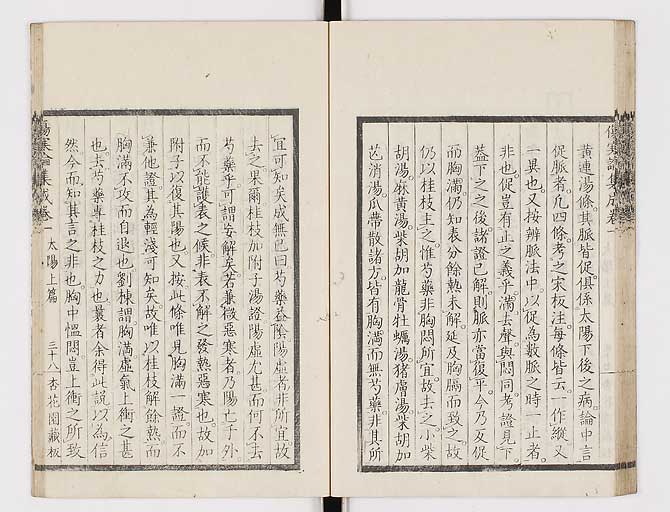 黄連湯條其脈皆促俱係太陽下後之病論中言
促脈者凡四條考之宋板注每條皆云一作縱又
一異也又按辨脈法中以促為數脈之時一止者
非也促豈有止之義乎滿去聲與悶同考證見下
蓋下之之後諸證已解則脈亦當復乎今乃反促
而胸滿仍知表分餘熱未解延及胸膈而致之故
仍以桂枝主之惟芍藥非胸悶所宜故去之小柴
胡湯麻黄湯柴胡加龍骨牡蠣湯猪膚湯柴胡加
芒消湯瓜蒂散諸方皆有胸滿而無芍藥非其所
宜可知矣成無已曰芍藥益陰陽虛者非所宜故
去之果爾桂枝加附子湯證陽虛尤甚而何不去
芍藥乎可謂妄解矣若兼微惡寒者乃陽亡于外
而不能護表之候非表不解之發熱惡寒也故加
附子以復其陽也又按此條唯見胸滿一證而不
兼他證其為輕淺可知矣故唯以桂枝解餘熱而
胸滿不攻而自退也劉棟謂胸滿虛氣上衝之甚
也去芍藥專桂枝之力也曩者余得此說以為信
然今而知其言之非也胸中慍悶豈上衝之所致
傷寒論集成卷一 太陽上篇 三十八 杏花園藏板